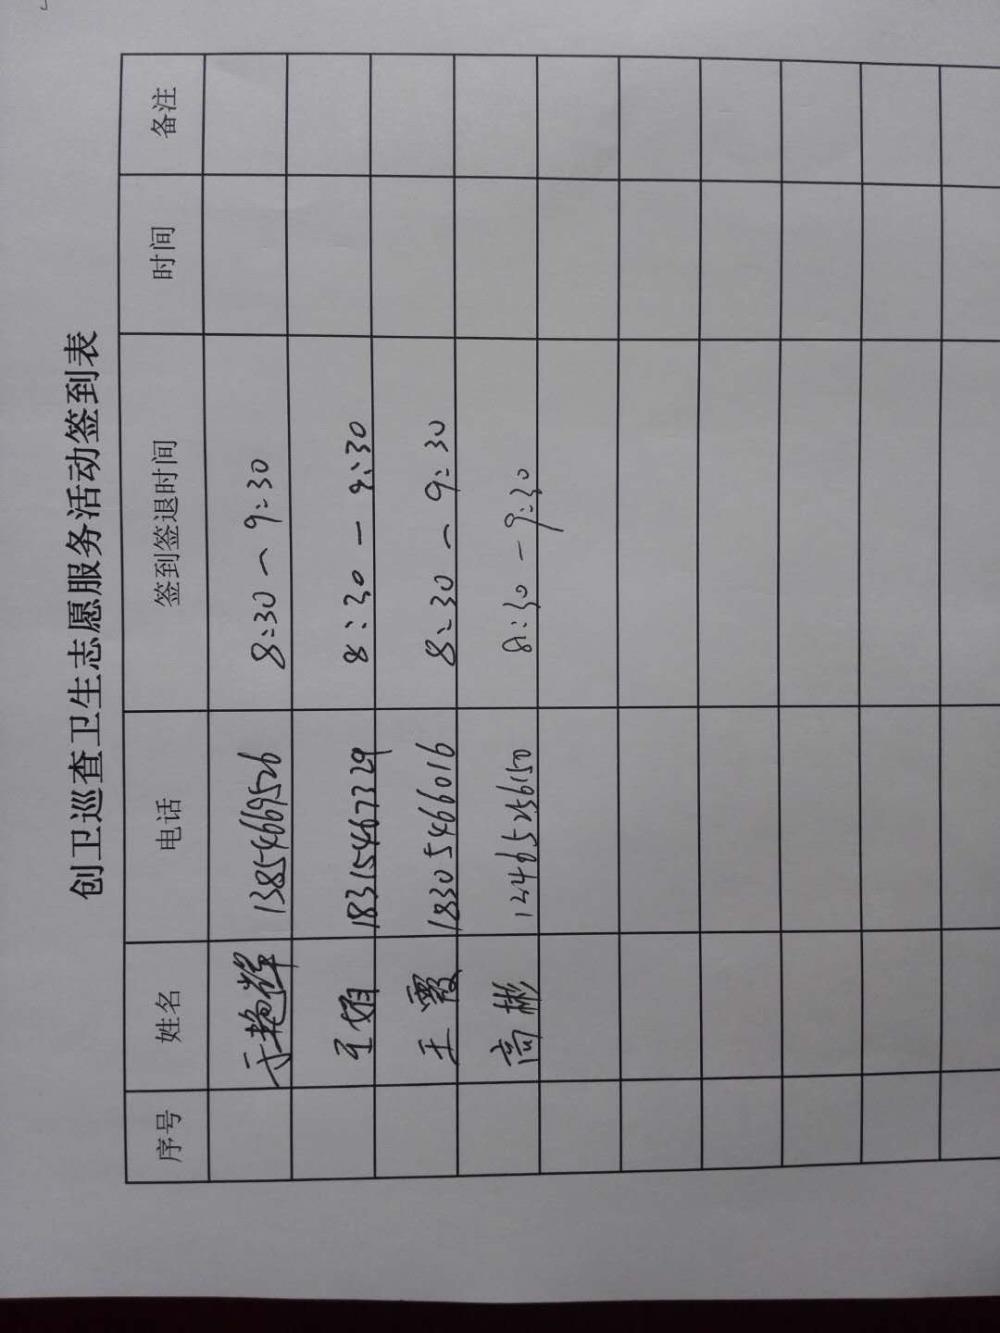 创卫巡查卫生志愿服务活动签到表
序号 姓名 电话 签到签退时间 时间 备注
于艳辉 13854669526 8:30-9:30
王娟 18315467329 8:30-9:30
王霞 18305466016 8:30-9:30
高彬 8:30-9:30